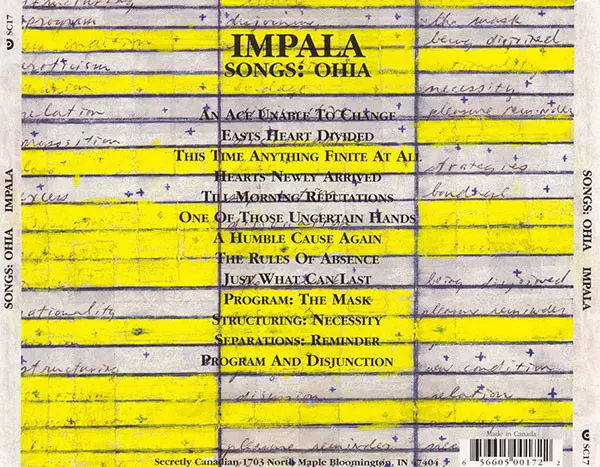 SC17
SONGS: OHIA IMPALA
structuring
program
condition
eroticism
relation
nationality
structuring
IMPALA
SONGS: OHIA
AN ACE UNABLE TO CHANGE
EASTS HEART DIVIDED
THIS TIME ANYTHING FINITE AT ALL
HEARTS NEWLY ARRIVED
TILL MORNING REPUTATIONS
ONE OF THOSE UNCERTAIN HANDS
A HUMBLE CAUSE AGAIN
THE RULES OF ABSENCE
JUST WHAT CAN LAST
PROGRAM: THE MASK
STRUCTURING: NECESSITY
SEPARATIONS: REMINDER
PROGRAM AND DISJUNCTION
pleasure reminder
Secretly Canadian 1703 North Maple Bloomington, IN 47404
the mask
being disguised
necessity
pleasure reminder
strategies
bondage
being disguised
pleasure reminder
condition
relation
Made in Canada
6 56605 00172 2
SONGS: OHIA IMPALA
SC17